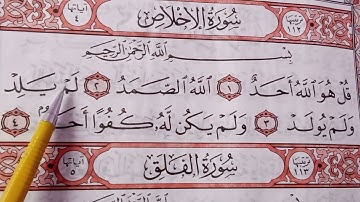 ترتيبها ١١٢ سُورَةُ الإِخْلَاصِ آياتها ٤
بِسْمِ اللَّهِ الرَّحْمَٰنِ الرَّحِيمِ
قُلْ هُوَ اللَّهُ أَحَدٌ ١ اللَّهُ الصَّمَدُ ٢ لَمْ يَلِدْ
وَلَمْ يُولَدْ ٣ وَلَمْ يَكُن لَّهُۥ كُفُوًا ٤
ترتيبها ١١٣ سُورَةُ الْفَلَقِ آياتها ٥